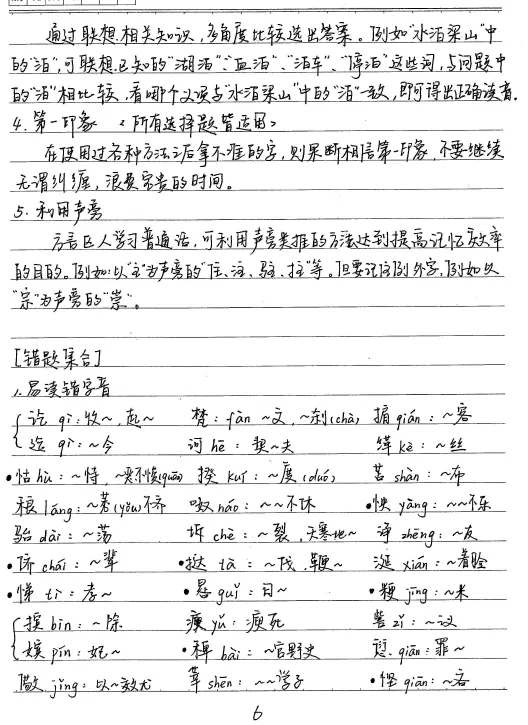 通过联想相关知识，多角度比较选出答案。例如"水泊梁山"中
的"泊"，可联想已知的"湖泊"、"血泊"、"泊车"、"停泊"这些词，与问题中
的"泊"相比较，看哪个义项与"水泊梁山"中的"泊"一致，即可得出正确读音.
4. 第一印象 <所有选择题皆适用>
在使用过各种方法之后拿不准的字，则果断相信第一印象，不要继续
无谓纠缠，浪费宝贵的时间。
5. 利用声旁
方言区人学习普通话，可利用声旁类推的方法达到提高记忆效率
的目的。例如:以"主"为声旁的"住、注、驻、拄"等。但要记住例外字，例如以
"宗"为声旁的"崇"。
[错题集合]
1. 易读错字音
讫 qì：收~，起~ 梵：fàn ~文，~刹(chà) 掮 qián：~客
迄 qì：~今 诃 hē：契~夫 缂 kè：~丝
•怙 hù：~恃，~恶不悛(quān) 揆 kuí：~度(duó) 苫 shàn：~布
稂 láng：~莠(yǒu)不齐 呶 náo：~~不休 •怏 yàng：~~不乐
骀 dài：~荡 坼 chè：~裂，天寒地~ 诤 zhèng：~友
•侪 chái：~辈 •挞 tà：~伐，鞭~ 涎 xián：~着脸
•悌 tì：孝~ •晷 guǐ：日~ •粳 jīng：~米
摈 bìn：~除 瘐 yǔ：瘐死 訾 zǐ：~议
嫔 pín：妃~ •稗 bài：~官野史 愆 qiān：罪~
儆 jǐng：以~效尤 莘 shēn：~~学子 •悭 qiān：~吝
6